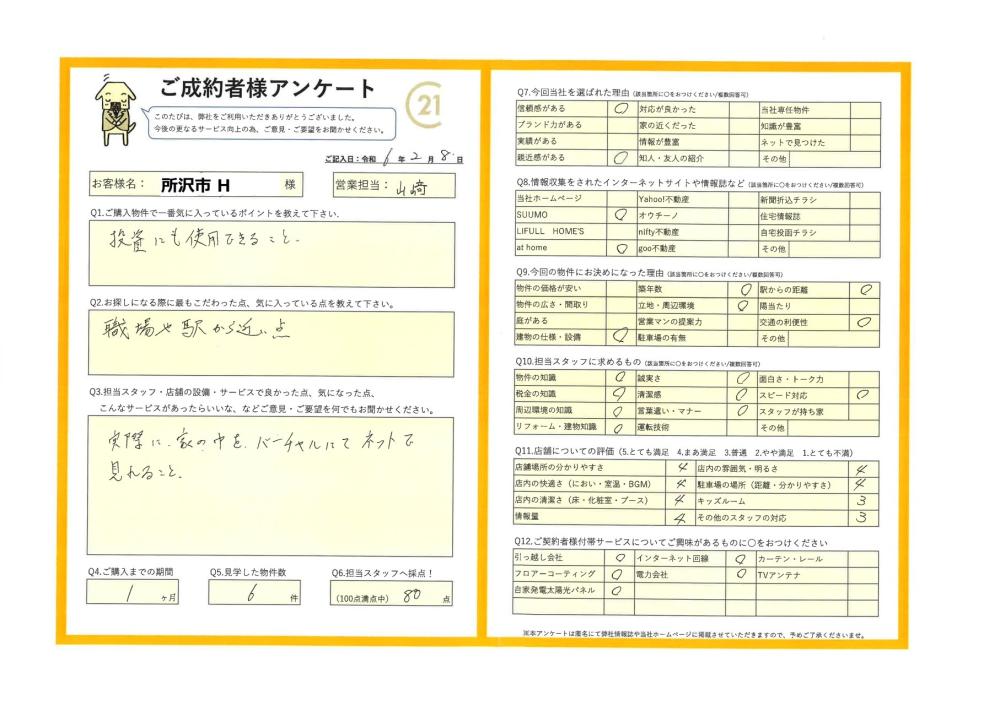 ご成約者様アンケート
21
このたびは、弊社をご利用いただきありがとうございました。
今後の更なるサービス向上の為、ご意見・ご要望をお聞かせください。
ご記入日：令和 6 年 2 月 8 日
お客様名： 所沢市 H 様
営業担当： 山﨑
Q1.ご購入物件で一番気に入っているポイントを教えて下さい。
投資にも使用できること。
Q2.お探しになる際に最もこだわった点、気に入っている点を教えて下さい。
職場や駅から近い点
Q3.担当スタッフ・店舗の設備・サービスで良かった点、気になった点、
こんなサービスがあったらいいな、などご意見・ご要望を何でもお聞かせください。
実際に、家の中を、バーチャルにて ネットで
見れること。
Q4.ご購入までの期間
1 ヶ月
Q5.見学した物件数
6 件
Q6.担当スタッフへ採点！
(100点満点中) 80 点
Q7.今回当社を選ばれた理由 (該当箇所に〇をおつけください/複数回答可)
信頼感がある 〇 対応が良かった 当社専任物件
ブランド力がある 家の近くだった 知識が豊富
実績がある 情報が豊富 ネットで見つけた
親近感がある 〇 知人・友人の紹介 その他
Q8.情報収集をされたインターネットサイトや情報誌など (該当箇所に〇をおつけください/複数回答可)
当社ホームページ Yahoo!不動産 新聞折込チラシ
SUUMO 〇 オウチーノ 住宅情報誌
LIFULL HOME'S nifty不動産 自宅投函チラシ
at home 〇 goo不動産 その他
Q9.今回の物件にお決めになった理由 (該当箇所に〇をおつけください/複数回答可)
物件の価格が安い 築年数 〇 駅からの距離 〇
物件の広さ・間取り 立地・周辺環境 〇 陽当たり
庭がある 営業マンの提案力 交通の利便性 〇
建物の仕様・設備 〇 駐車場の有無 その他
Q10.担当スタッフに求めるもの (該当箇所に〇をおつけください/複数回答可)
物件の知識 〇 誠実さ 〇 面白さ・トーク力
税金の知識 〇 清潔感 〇 スピード対応 〇
周辺環境の知識 〇 言葉遣い・マナー 〇 スタッフが持ち家
リフォーム・建物知識 〇 運転技術 その他
Q11.店舗についての評価 (5.とても満足 4.まあ満足 3.普通 2.やや満足 1.とても不満)
店舗場所の分かりやすさ 4 店内の雰囲気・明るさ 4
店内の快適さ（におい・室温・BGM） 4 駐車場の場所（距離・分かりやすさ） 4
店内の清潔さ（床・化粧室・ブース） 4 キッズルーム 3
情報量 4 その他のスタッフの対応 3
Q12.ご契約者様付帯サービスについてご興味があるものに〇をおつけください
引っ越し会社 〇 インターネット回線 〇 カーテン・レール
フロアーコーティング 〇 電力会社 〇 TVアンテナ
自家発電太陽光パネル 〇
※本アンケートは匿名にて弊社情報誌や当社ホームページに掲載させていただきますので、予めご了承くださいませ。